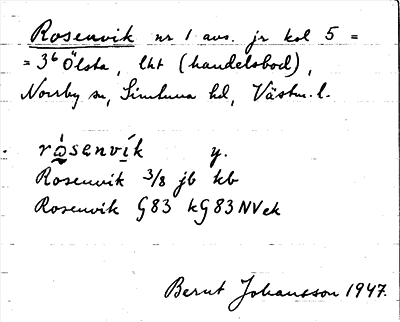 Rosenvik nr 1 avs. jr kol 5 =
= 3⁶ Ölsta, lht (handelsbod),
Norrby sn, Simtuna hd, Västm. l.
rò̭senvík y.
Rosenvik 3/8 jb kb
Rosenvik G83 kG83NVek
Bernt Johansson 1947.